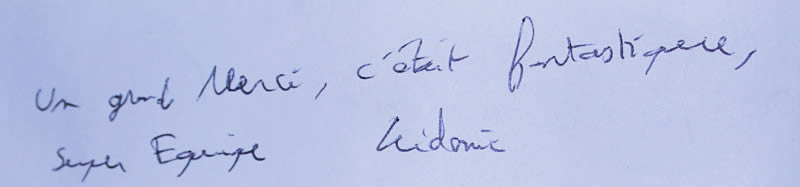 Un grand Merci, c'était fantastique,
Super Equipe